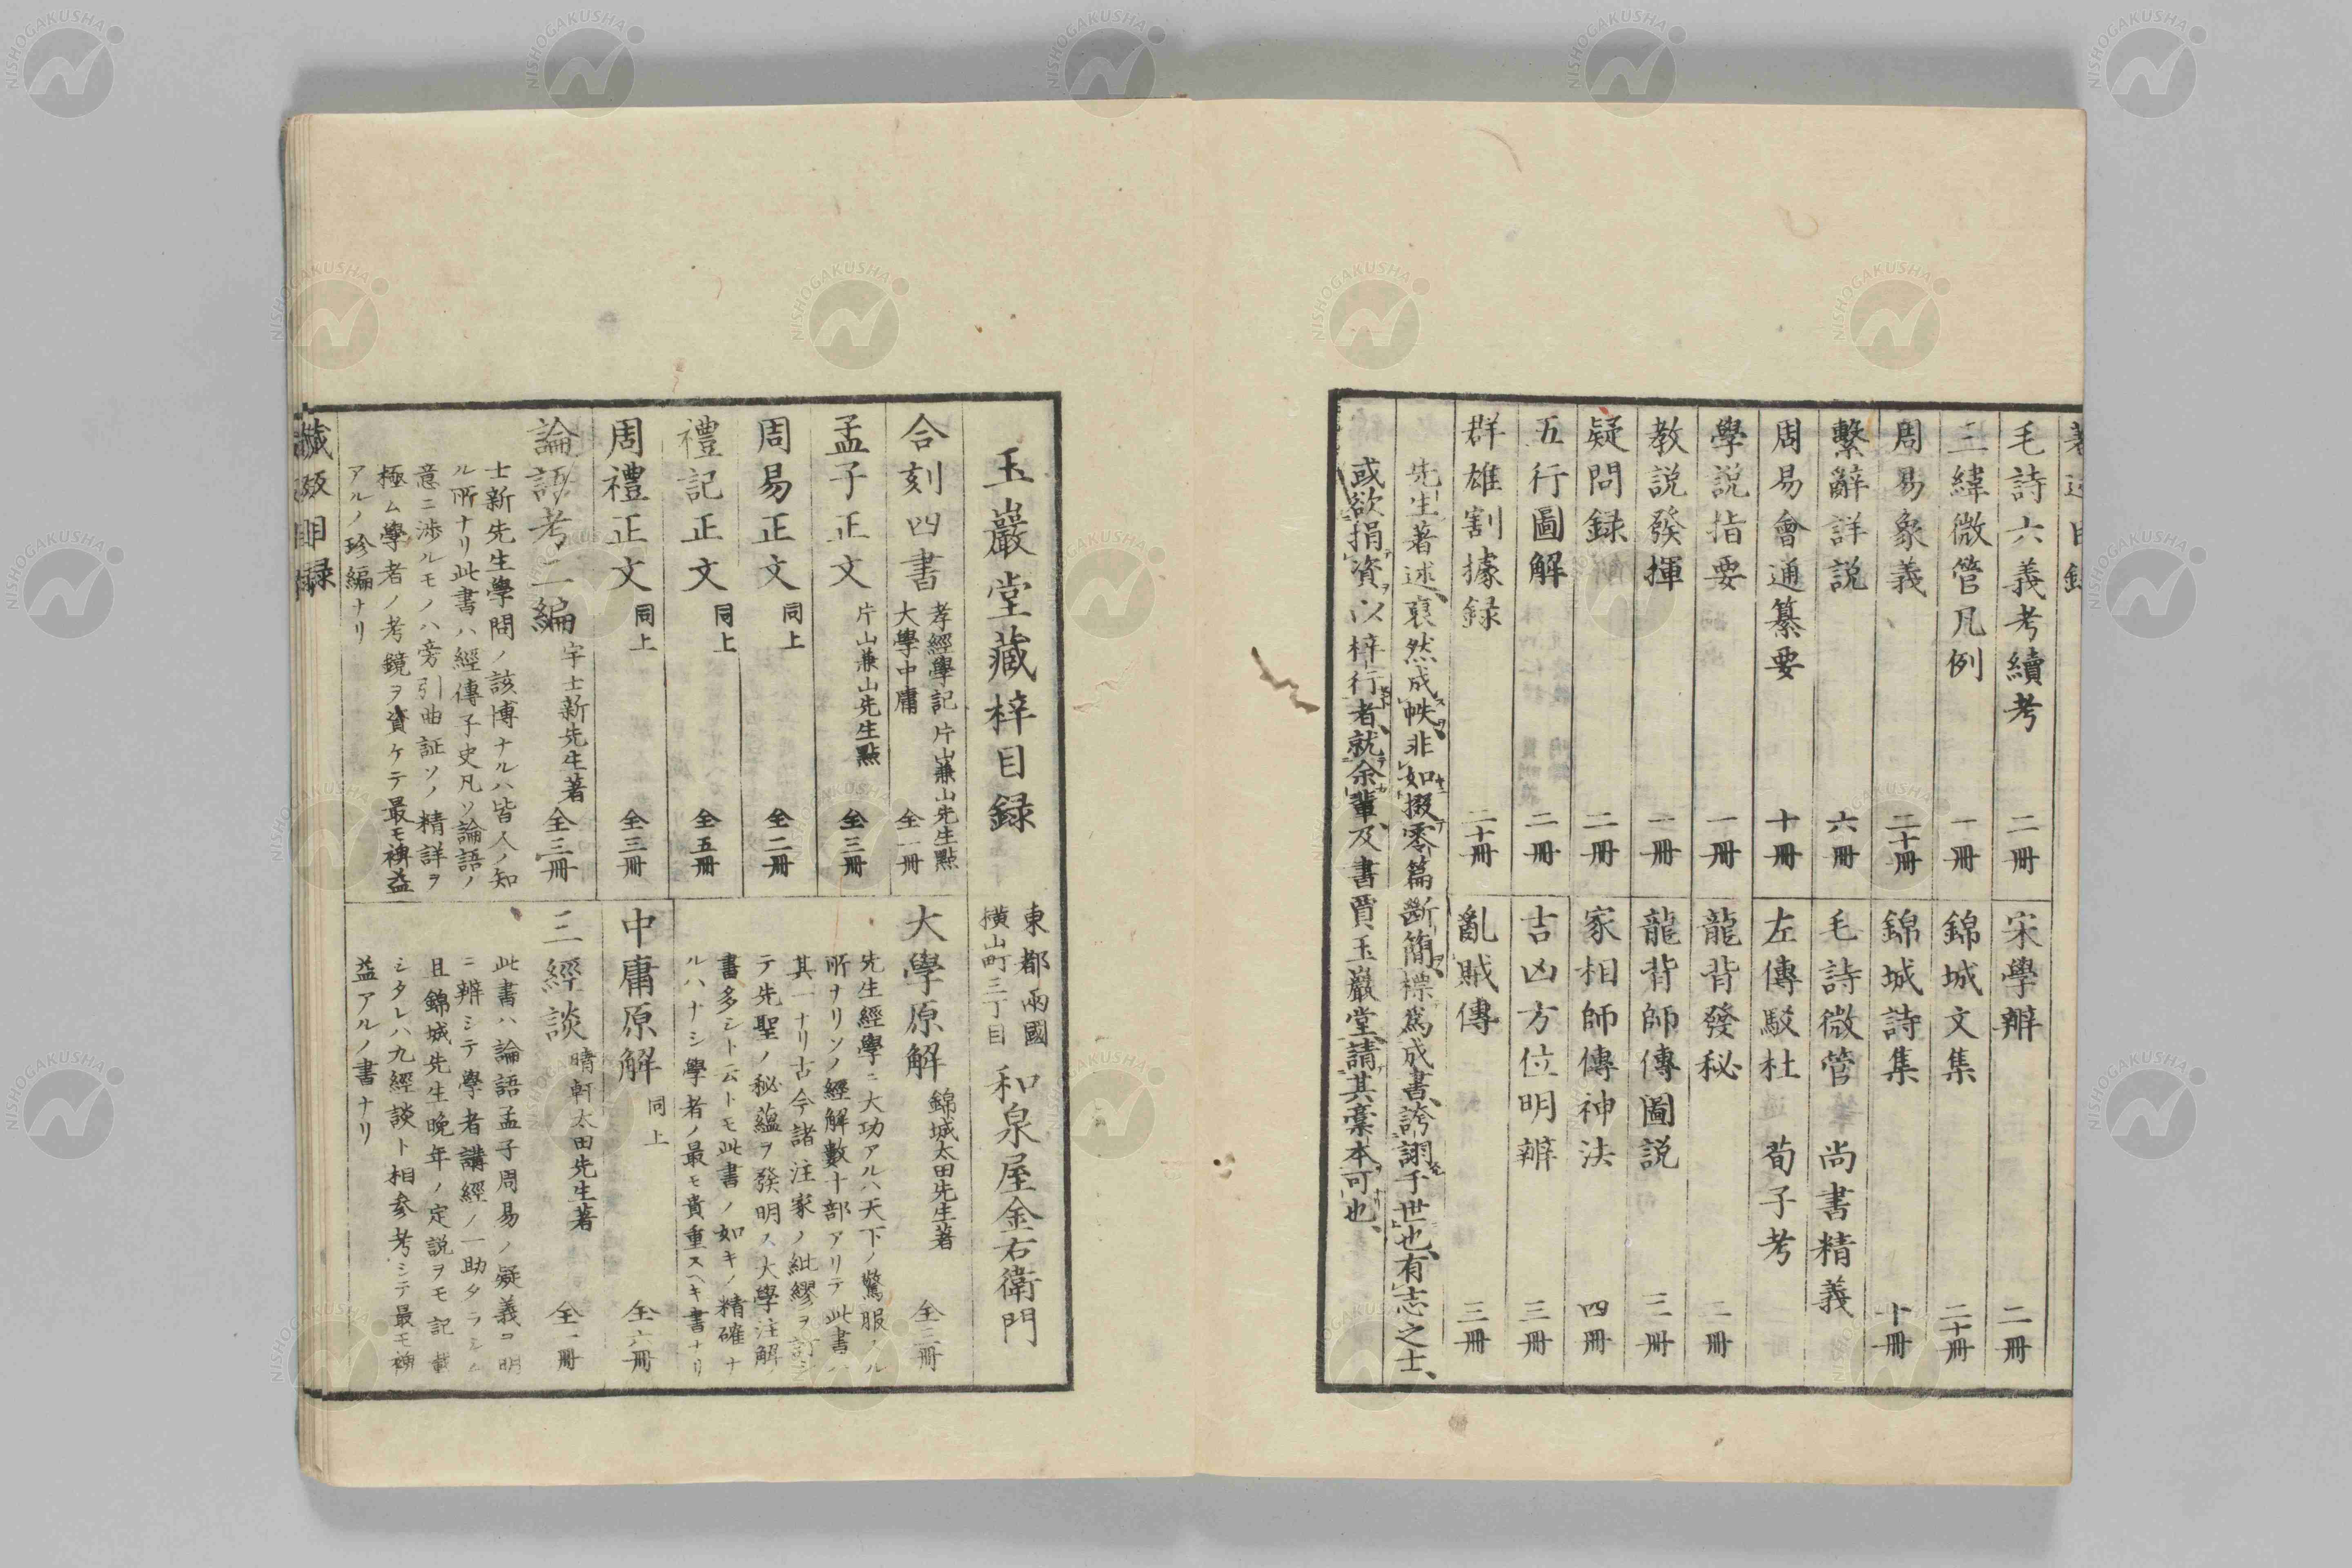 著述目録
毛詩六義考續考 二冊
三緯微管凡例 一冊
周易象義 二十冊
繫辭詳説 六冊
周易會通纂要 十冊
學説指要 一冊
教説發揮 一冊
疑問録 二冊
五行圖解 二冊
群雄割據録 二十冊
宋學辨 二冊
錦城文集 二十冊
錦城詩集 十冊
毛詩微管 尚書精義
左傳駁杜 荀子考
龍背發秘 二冊
龍背師傳圖説 三冊
家相師傳神法 四冊
吉凶方位明辨 三冊
亂賊傳 三冊
先生著述、裒然成帙、非如掇零篇斷簡、標爲成書、誇詡于世也、有志之士、
或欲捐資以梓行者、就余輩及書賈玉巖堂、請其稾本可也、
玉巖堂藏梓目録
東都兩國
横山町三丁目 和泉屋金右衛門
合刻四書 孝經學記 片山兼山先生點
大學中庸 全一冊
孟子正文 片山兼山先生點 全三冊
周易正文 同上 全二冊
禮記正文 同上 全五冊
周禮正文 同上 全三冊
論語考二編 宇士新先生著 全三冊
士新先生學問ノ該博ナルハ皆人ノ知
ル所ナリ此書ハ經傳子史凡ソ論語ノ
意ニ渉ルモノハ旁引曲証ソノ精詳ヲ
極ム學者ノ考鏡ヲ資ケテ最モ裨益
アルノ珍編ナリ
大學原解 錦城太田先生著 全三冊
先生經學ニ大功アルハ天下ノ驚服スル
所ナリソノ經解數十部アリテ此書ハ
其一ナリ古今諸注家ノ紕繆ヲ訂シ
テ先聖ノ秘蘊ヲ發明ス大學注解ノ
書多シト云トモ此書ノ如キノ精確ナ
ルハナシ學者ノ最モ貴重スヘキ書ナリ
中庸原解 同上 全六冊
三經談 晴軒太田先生著 全一冊
此書ハ論語孟子周易ノ疑義ヲ明
ニ辨シテ學者講經ノ一助タラシム
且錦城先生晩年ノ定説ヲモ記載
シタレハ九經談ト相参考シテ最モ裨
益アルノ書ナリ
藏版目録
NISHOGAKUSHA